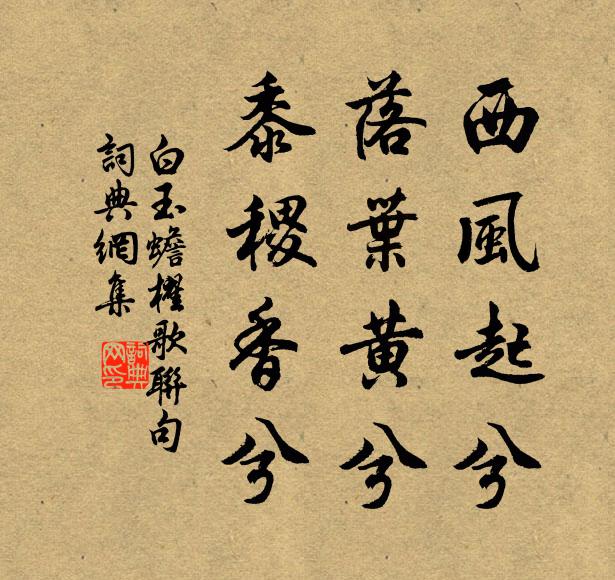 西風起兮
落葉黃兮
黍稷香兮
白玉蟾櫂歌聯句
詞典網集
詞典
网印